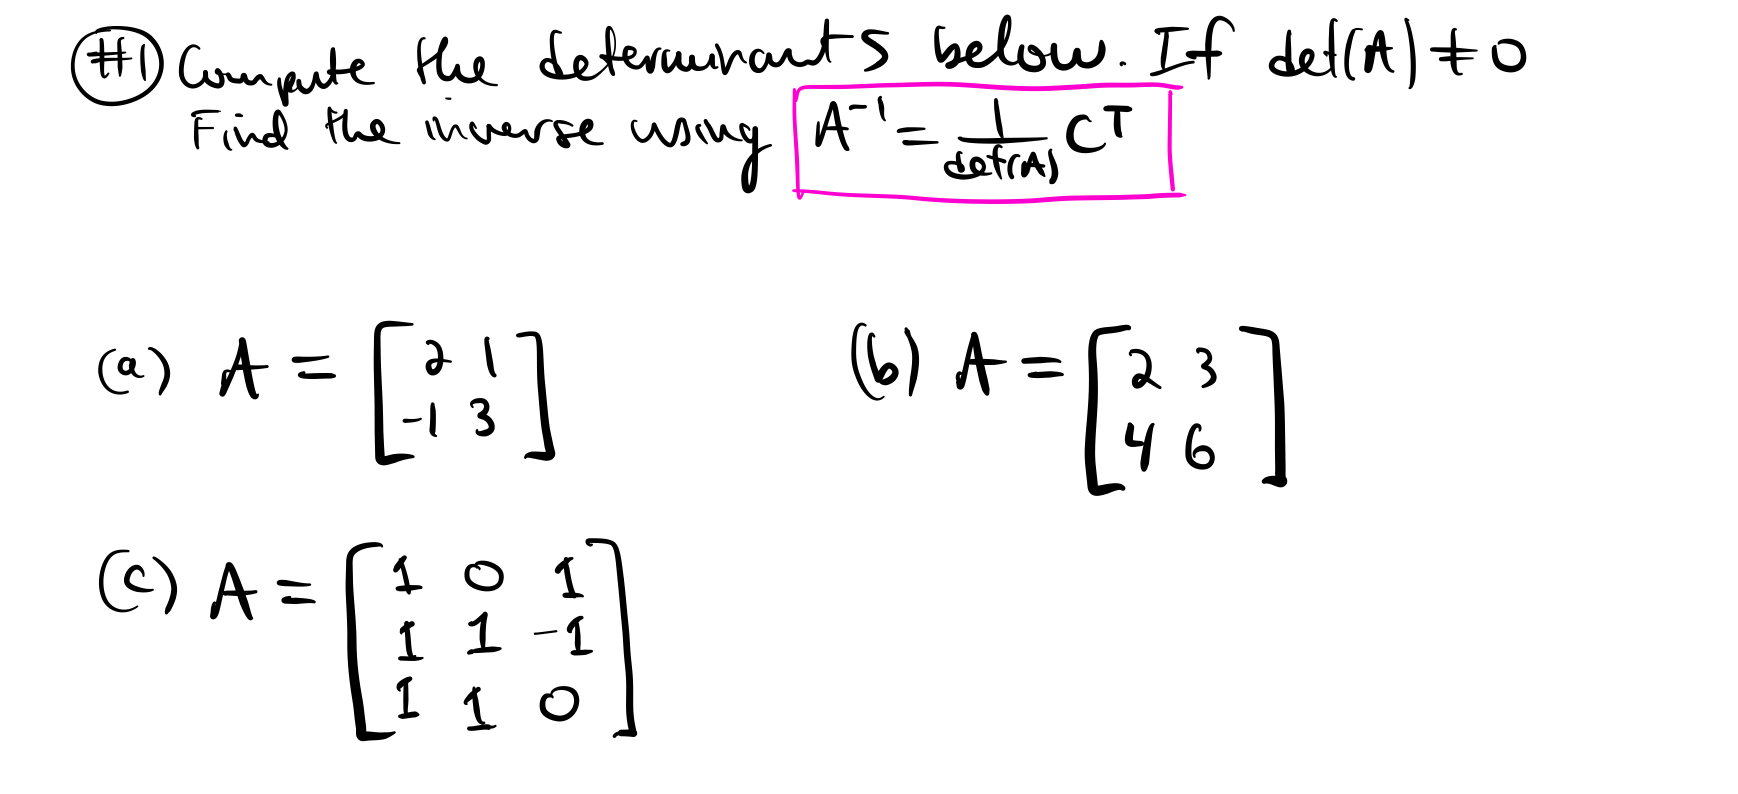 #1 Compute the determinants below. If det(A) ≠ 0
Find the inverse using A⁻¹ = 1/det(A) Cᵀ
(a) A = [2 1
-1 3]
(b) A = [2 3
4 6]
(c) A = [1 0 1
1 1 -1
1 1 0]